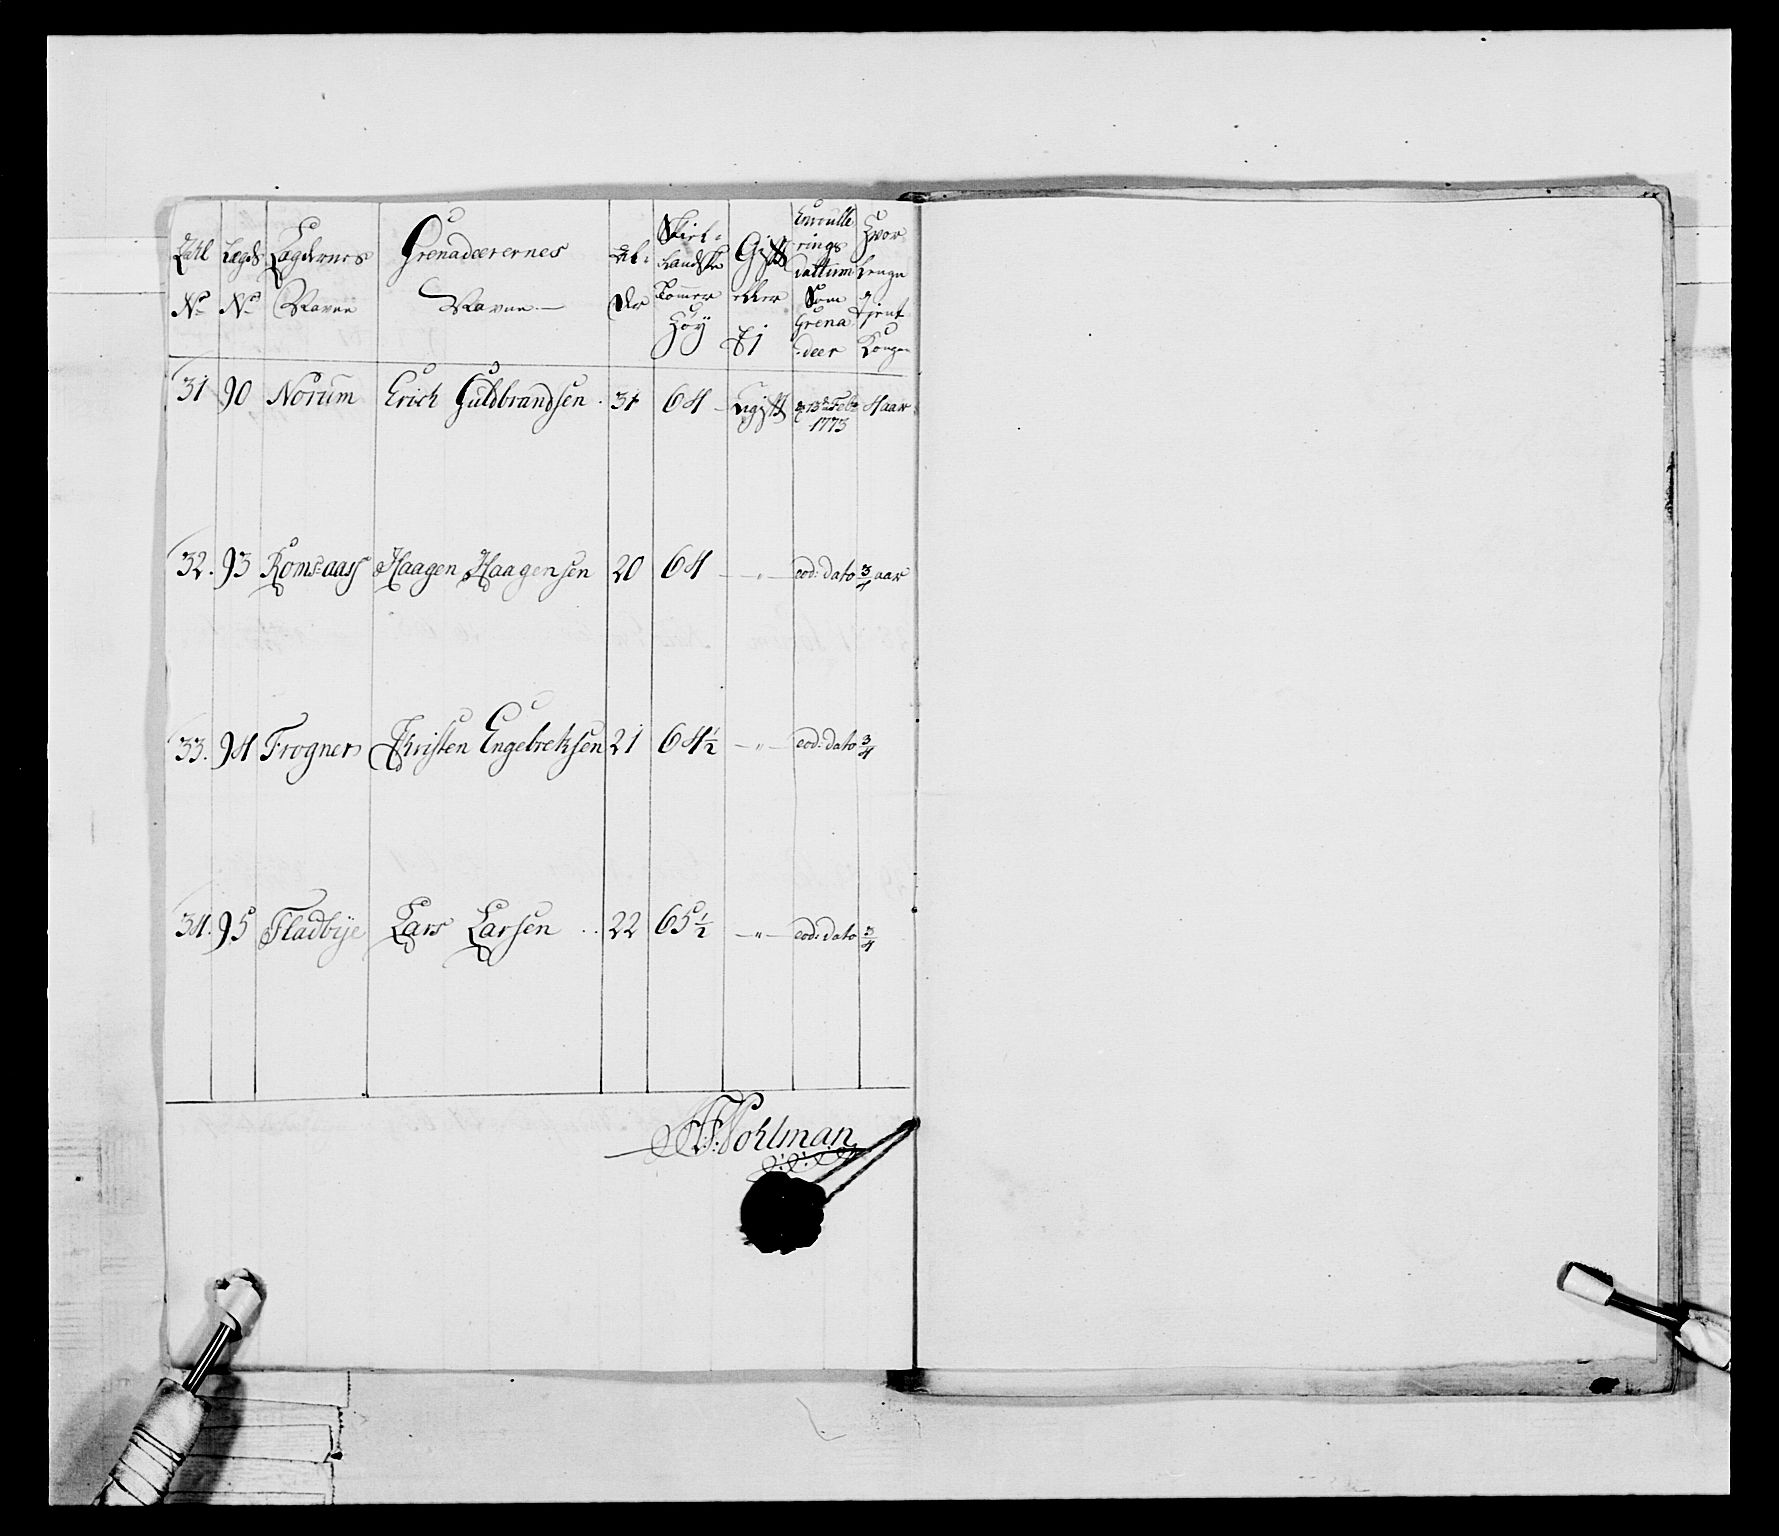 Tahl No
Lægds No
Lægdernes Navne
Grenadeerernes Navne
Al- der
Siel- landske Tommer Høÿ
Gift eller Ej
Enroulle rings dattum Som Grena deer
Hvor Lenge Tjent Kongen
31 90 Norum Erich Guldbrandsen 31 64 Ugift d 13de Feb: 1773 4 aar
32. 93 Komsaas Haagen Haagensen 20 64 — " — eod: dato 3/4 aar
33. 94 Frogner Christen Engebretsen 21 64 1/2 — " — eod: dato 3/4
34. 95 Fladbÿe Lars Larsen 22 65 1/2 — " — eod: dato 3/4
Pohlman